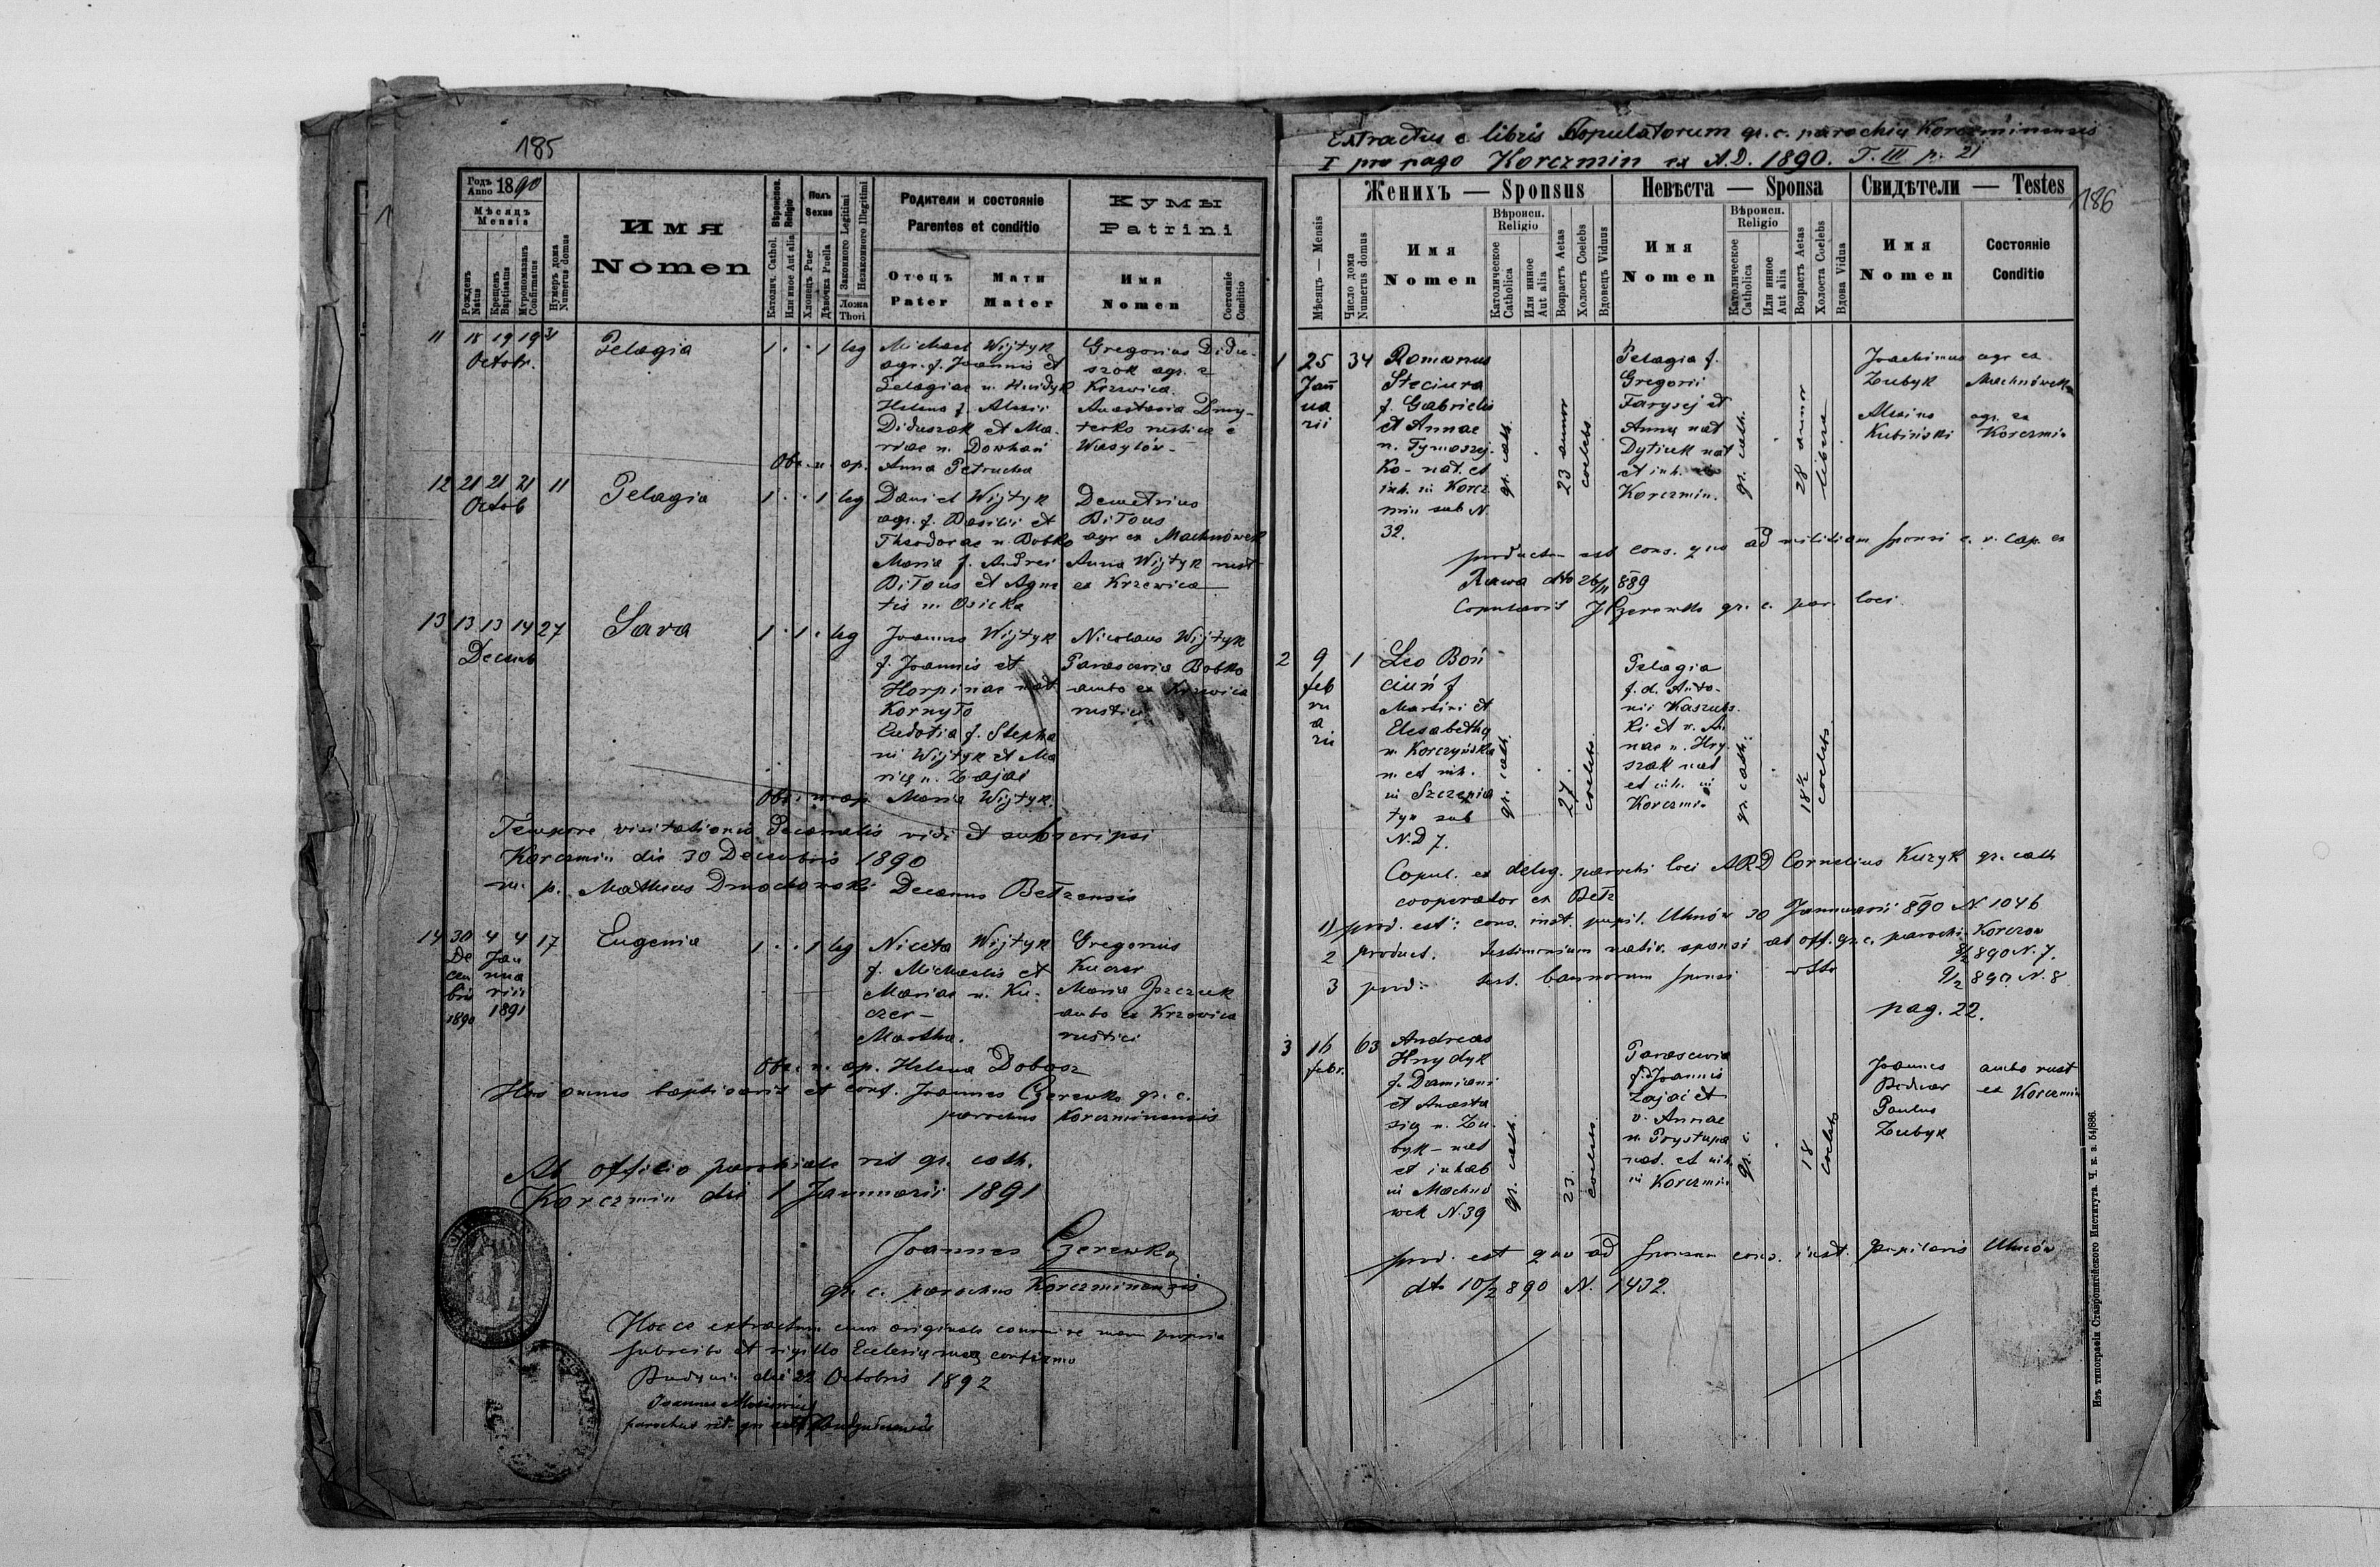 185
Годъ Anno 1890
Мѣсяцъ Mensis
Рожденъ Natus
Крещенъ Baptisatus
Муропомазанъ Confirmatus
Нумеръ дома Numerus domus
Имя
Nomen
Вѣроиспов. Religio
Католич. Cathol.
Или иное Aut alia
Полъ Sexus
Хлопецъ Puer
Дѣвочка Puella
Законного Legitimi
Незаконного Illegitimi
Ложа Thori
Родители и состояніе
Parentes et conditio
Отецъ Pater
Мати Mater
Кумы
Patrini
Имя Nomen
Состояніе Conditio
11 18 19 19 31 Pelagia 1 . . 1 leg Michael Wijtyk Gregorius Didu-
Octobr. agr. f. Joannis et szok agr. e
Pelagiae n. Hnidyk Krzewica.
Helena f. Alexii Anastasia Dmy-
Diduszok et Ma- terko rustica e
riae n. Dowhań Wasylów
Obs. n. ap. Anna Petrucha
12 21 21 21 11 Pelagia 1 . . 1 leg Daniel Wijtyk Demetrius
Octob agr. f. Basilii et Biłous
Theodorae n. Bobko agr ex Machnówek
Maria f. Andrei Anna Wijtyk rust
Biłous et Agne ex Krzewica
tis n. Osicka
13 13 13 14 27 Sava 1 . 1 . leg Joannes Wijtyk Nicolaus Wijtyk
Decemb f. Joannis et Parascevia Bobko
Horpinae nat ambo ex Krzewica
Kornyło rustici
Eudotia f. Stepha
ni Wijtyk et Ma
riae n. Zając
Obs. n. ap. Maria Wijtyk.
Tempore visitationis Decanalis vidi et subscripsi
Korczmin die 30 Decembris 1890
m. p. Mathias Dmochowski Decanus Bełzensis
14 30 4 4 17 Eugenia 1 . . 1 leg Niceta Wijtyk Gregorius
De Jan f. Michaelis et Kuczer
cem nua Mariae n. Ku- Maria
bris rii czer ambo ex Krzewica
1890 1891 Martha. rustici
Obs. n. ap. Helena Dobosz
Hos omnes baptisavit et conf. Joannes Czerewko gr. c.
parochus Korczminensis
Ab officio parochiale rit gr. cath.
Korczmin die 1 Januarii 1891
Joannes Czerewko
gr. c. parochus Korczminensis
Hocce extractum cum originale convenire manu propria
subscribo et sigillo Ecclesiae meae confirmo
die 22 Octobris 1892
Joannes
parochus rit. gr. cath.
Extractus e libris Copulatorum gr. c. parochiae Korczminensis
I pro pago Korczmin ex A.D. 1890. T. III p. 21
186
Женихъ — Sponsus
Невѣста — Sponsa
Свидѣтели — Testes
Мѣсяцъ — Mensis
Число дома Numerus domus
Имя Nomen
Вѣроисп. Religio
Католическое Catholica
Или инное Aut alia
Возрастъ Aetas
Холостъ Coelebs
Вдовецъ Viduus
Имя Nomen
Вѣроисп. Religio
Католическое Catholica
Или инное Aut alia
Возрастъ Aetas
Холоста Coelebs
Вдова Vidua
Имя Nomen
Состояніе Conditio
1 25 34 Romanus Pelagia f. Joachimus agr ex
Jan Steciura Gregorii Zubyk Machnówek
ua f. Gabrielis Farysej et Alexius agr. ex
rii et Annae Annae nat Kubiński Korczmin
n. Tymoszej- Dytiuk nat
ko - nat. et et inh. in
inh. in Korcz Korczmin.
min sub N.
32.
gr. cath. 23 annor coelebs gr. cath. 28 annor libera
productus est cons. quo ad militiam sponsi c. r. cap. ex
Rawa dto 26/11 889
Copulavit J Czerewko gr. c. par. loci.
2 9 1 Leo Boń Pelagia
feb ciuń f f. d. Anto-
ru Martini et nii Kaszubs-
a Elisabethae ki et v. An
rii n. Korczyńska nae n. Hry-
n. et inh. szak nat
in Szczepia et inh. in
tyn sub Korczmin
N.D 7.
gr. cath. 27 coelebs gr. cath. 18 1/2 coelebs
Copul. ex deleg. parochi loci ARD Cornelius Kuzyk gr. cath
cooperator ex Bełz
1) prod. est: cons. inst. pupil. Uhnów 30 Januarii 890 N. 1046
2 product. testimonium nativ. sponsi ab off. gr. c. paroch. Korczow
8/2 890 N. 7.
3 prod: test. bannorum sponsi dtto 9/2 890 N. 8
pag. 22.
3 16 63 Andreas Parascevia Joannes ambo rust
febr. Hnydyk f. Joannis Bednar ex Korczmin
f. Damiani Zając et Paulus
et Anasta v. Annae Zubyk
siae n. Zu- n. Prystupa
byk - nat nat. et inh.
et inhab in Korczmin
in Machnó
wek N. 39
gr. cath. 23 coelebs gr. c. 18 coelebs
prod. est quo ad sponsam cons. inst. pupilaris Uhnów
dto 10/2 890 N. 1432.
Изъ типографіи Ставропигійского Института. Ч. к. з. 54/886.